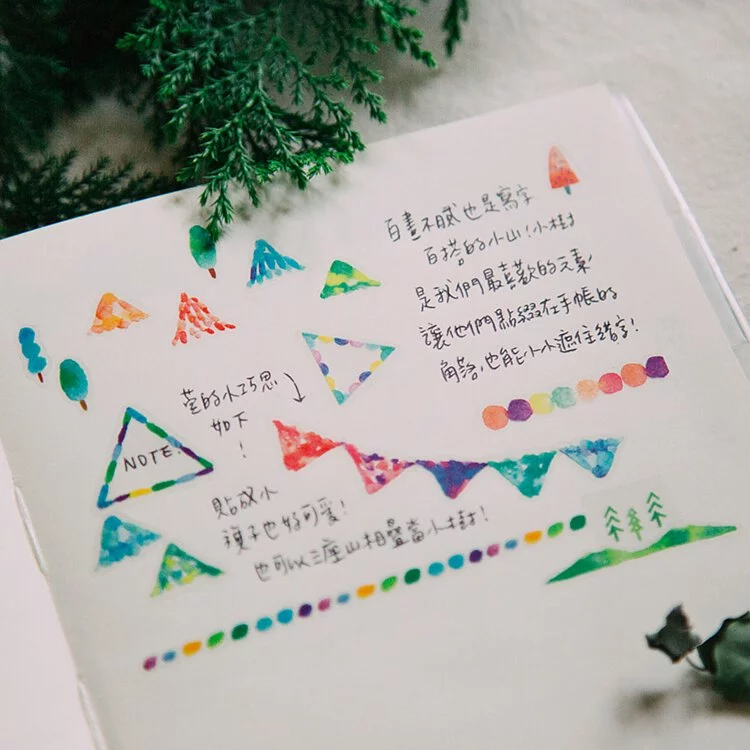 百畫不膩也是寫字
百搭的小山!小樹
是我們最喜歡的元素
讓他們點綴在手帳的
角落,也能小小遮住錯字!
的小巧思
如下
!
NOTE.
貼成小
旗子也好可愛!
也可以三座山相疊當小樹!